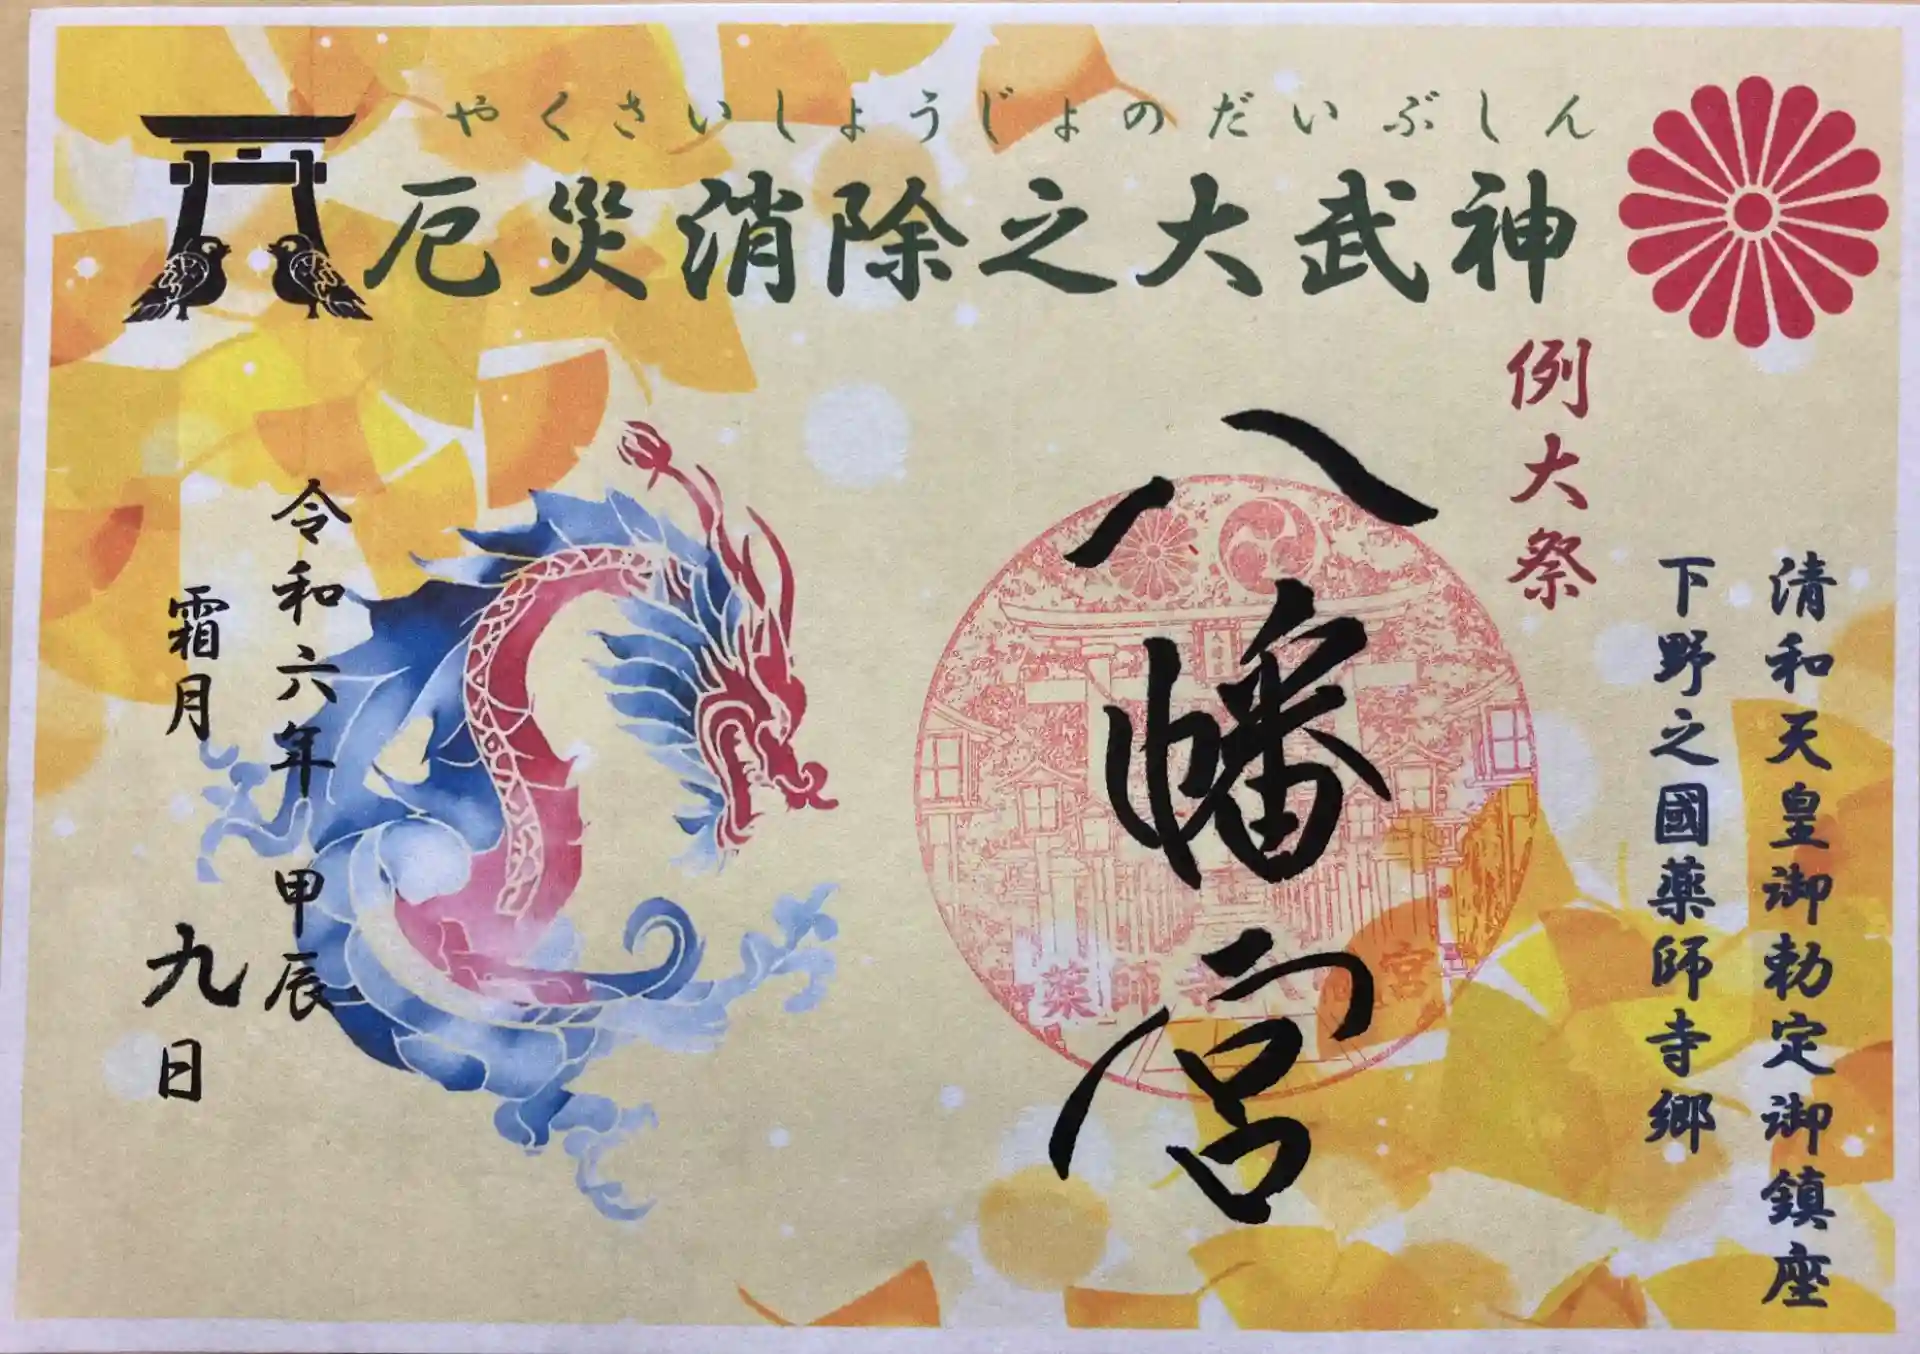 やくさいしょうじょのだいぶしん
厄災消除之大武神
清和天皇御勅定御鎮座
下野之國薬師寺郷
例大祭
八幡宮
薬師寺八幡宮
令和六年甲辰
霜月九日